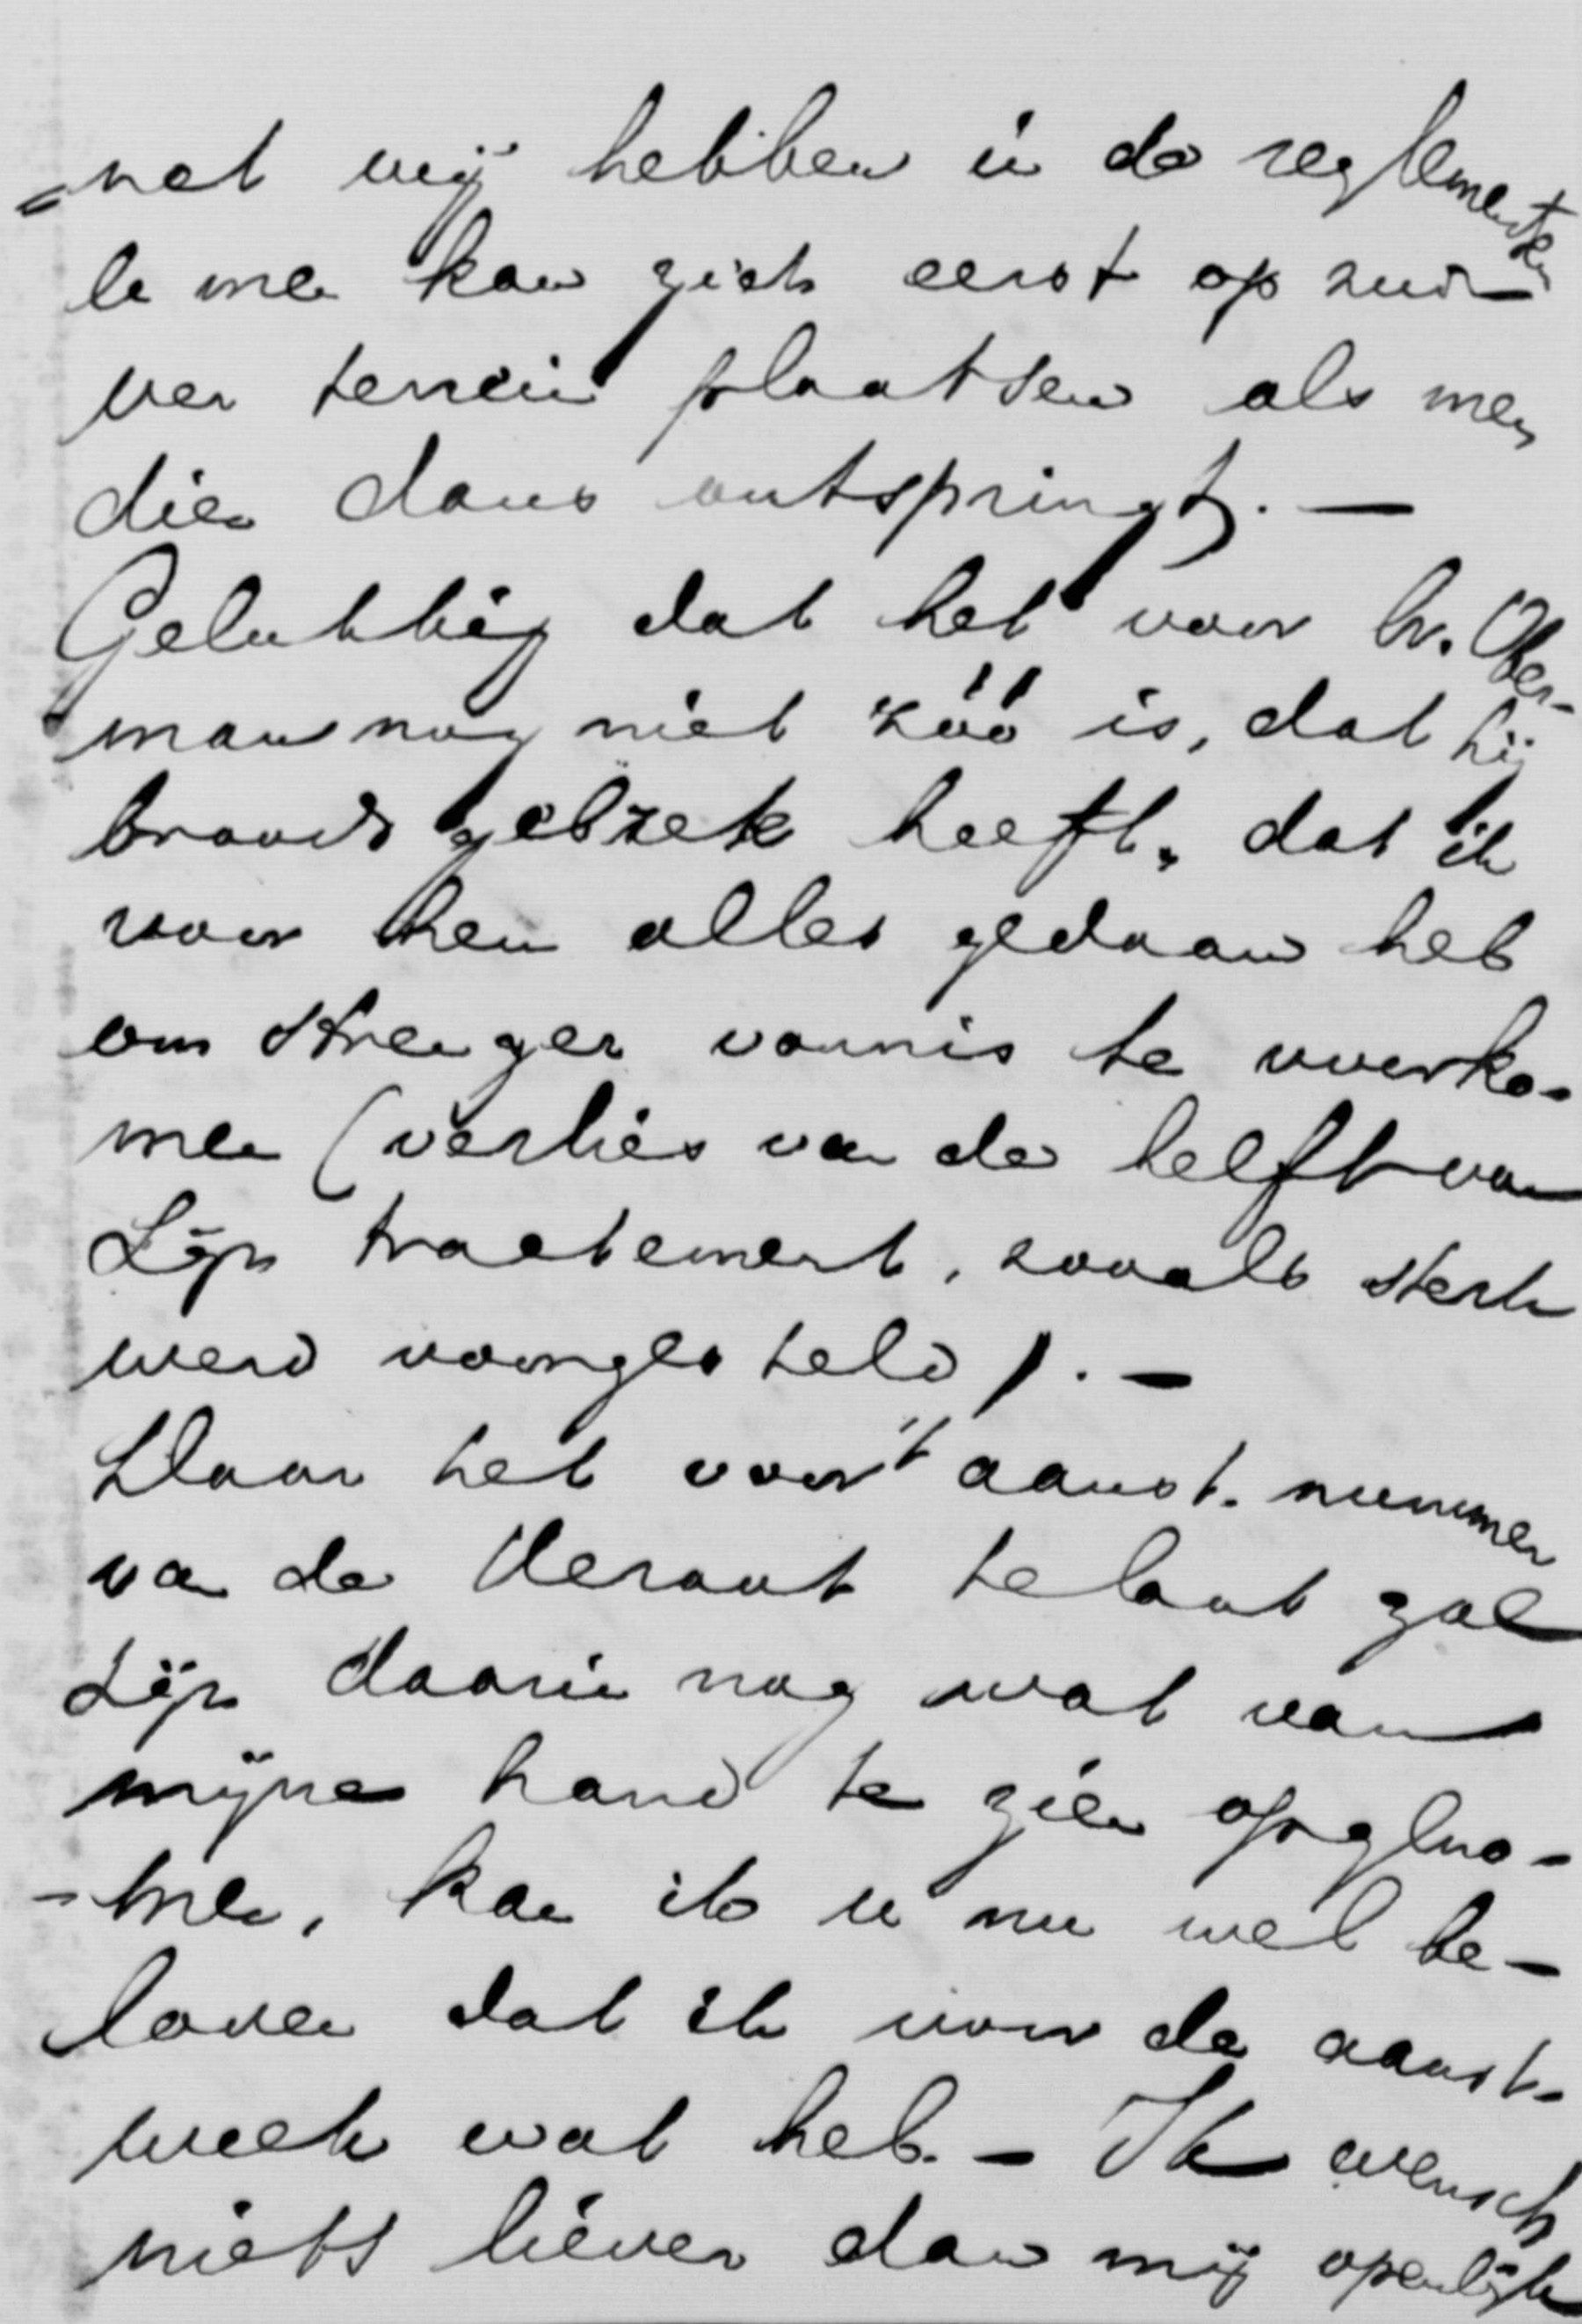 =net wij hebben in de reglementen
le men kan zich eerst op zui-
ver terrein plaatsen als men
dien dans ontspringt. —
Gelukkig dat het voor br. Ober-
man nog niet zóó is, dat hij
broodsgebrek heeft, dat ik
voor hem alles gedaan heb
om strenger vonnis te voorko-
men (verlies van de helft van
zijn tractement, zooals sterk
werd voorgesteld). —
Daar het voor 't aanst. nummer
van de Heraut te laat zal
zijn daarin nog wat van
mijne hand te zien opgeno-
-men, kan ik u nu wel be-
loven dat ik voor de aanst.
week wat heb. — Ik wensch
niets liever dan mij openlijk